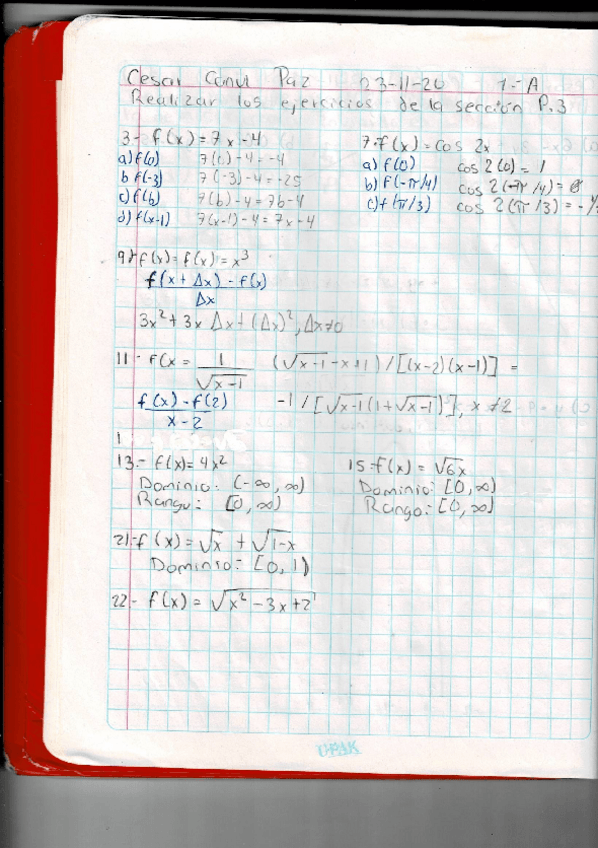 Cesar Canul Paz 23-11-20 1.- A
Realizar los ejercicios de la sección P.3
3.- f(x) = 7x - 4
a) f(0) 7(0) - 4 = -4
b f(-3) 7(-3) - 4 = -25
c) f(b) 7(b) - 4 = 7b - 4
d) f(x-1) 7(x-1) - 4 = 7x - 4
7. f(x) = cos 2x
a) f(0) cos 2(0) = 1
b) f(-π/4) cos 2(-π/4) =
c) f(π/3) cos 2(π/3) = -
f(x) = f(x) = x³
f(x + Δx) - f(x)
Δx
3x² + 3x Δx + (Δx)², Δx≠0
11.- f(x = 1/√x-1 (√x-1 -x+1) / [(x-2)(x-1)] =
f(x) - f(2) -1 / [√x-1 (1+√x-1)], x ≠ 2
x - 2
13.- f(x) = 4x²
Dominio: (-∞, ∞)
Rango: [0, ∞)
15.- f(x) = √6x
Dominio: [0, ∞)
Rango: [0, ∞)
21.- f(x) = √x + √1-x
Dominio: [0, 1)
22.- f(x) = √x² - 3x + 2